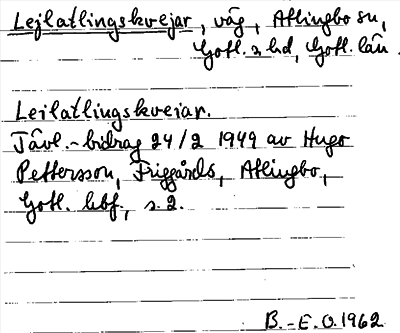 Lejlatlingskvejar, väg, Atlingbo sn,
Gotl. s. hd, Gotl. län.
Leilatlingskveiar.
Tävl.-bidrag 24/2 1949 av Hugo
Pettersson, Friggårds, Atlingbo,
Gotl. hbf., s. 2.
B.-E.O. 1962